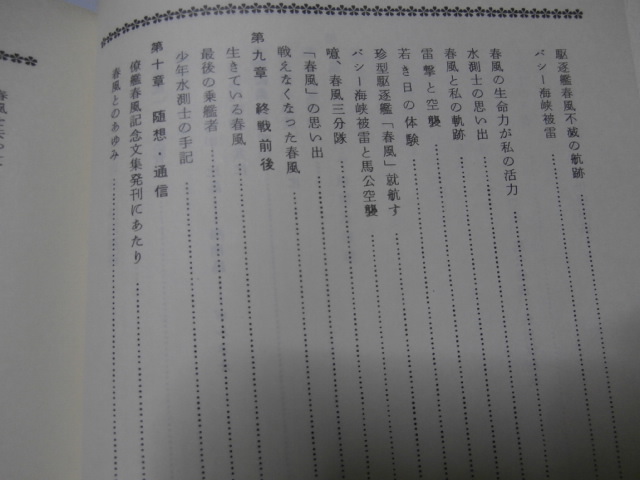 駆逐艦春風不滅の航跡
バシー海峡被雷
春風の生命力が私の活力
水測士の思い出
春風と私の軌跡
雷撃と空襲
若き日の体験
珍型駆逐艦「春風」就航す
バシー海峡被雷と馬公空襲
噫、春風三分隊
「春風」の思い出
戦えなくなった春風
第九章 終戦前後
生きている春風
最後の乗艦者
少年水測士の手記
第十章 随想・通信
僚艦春風記念文集発刊にあたり
春風とのあゆみ